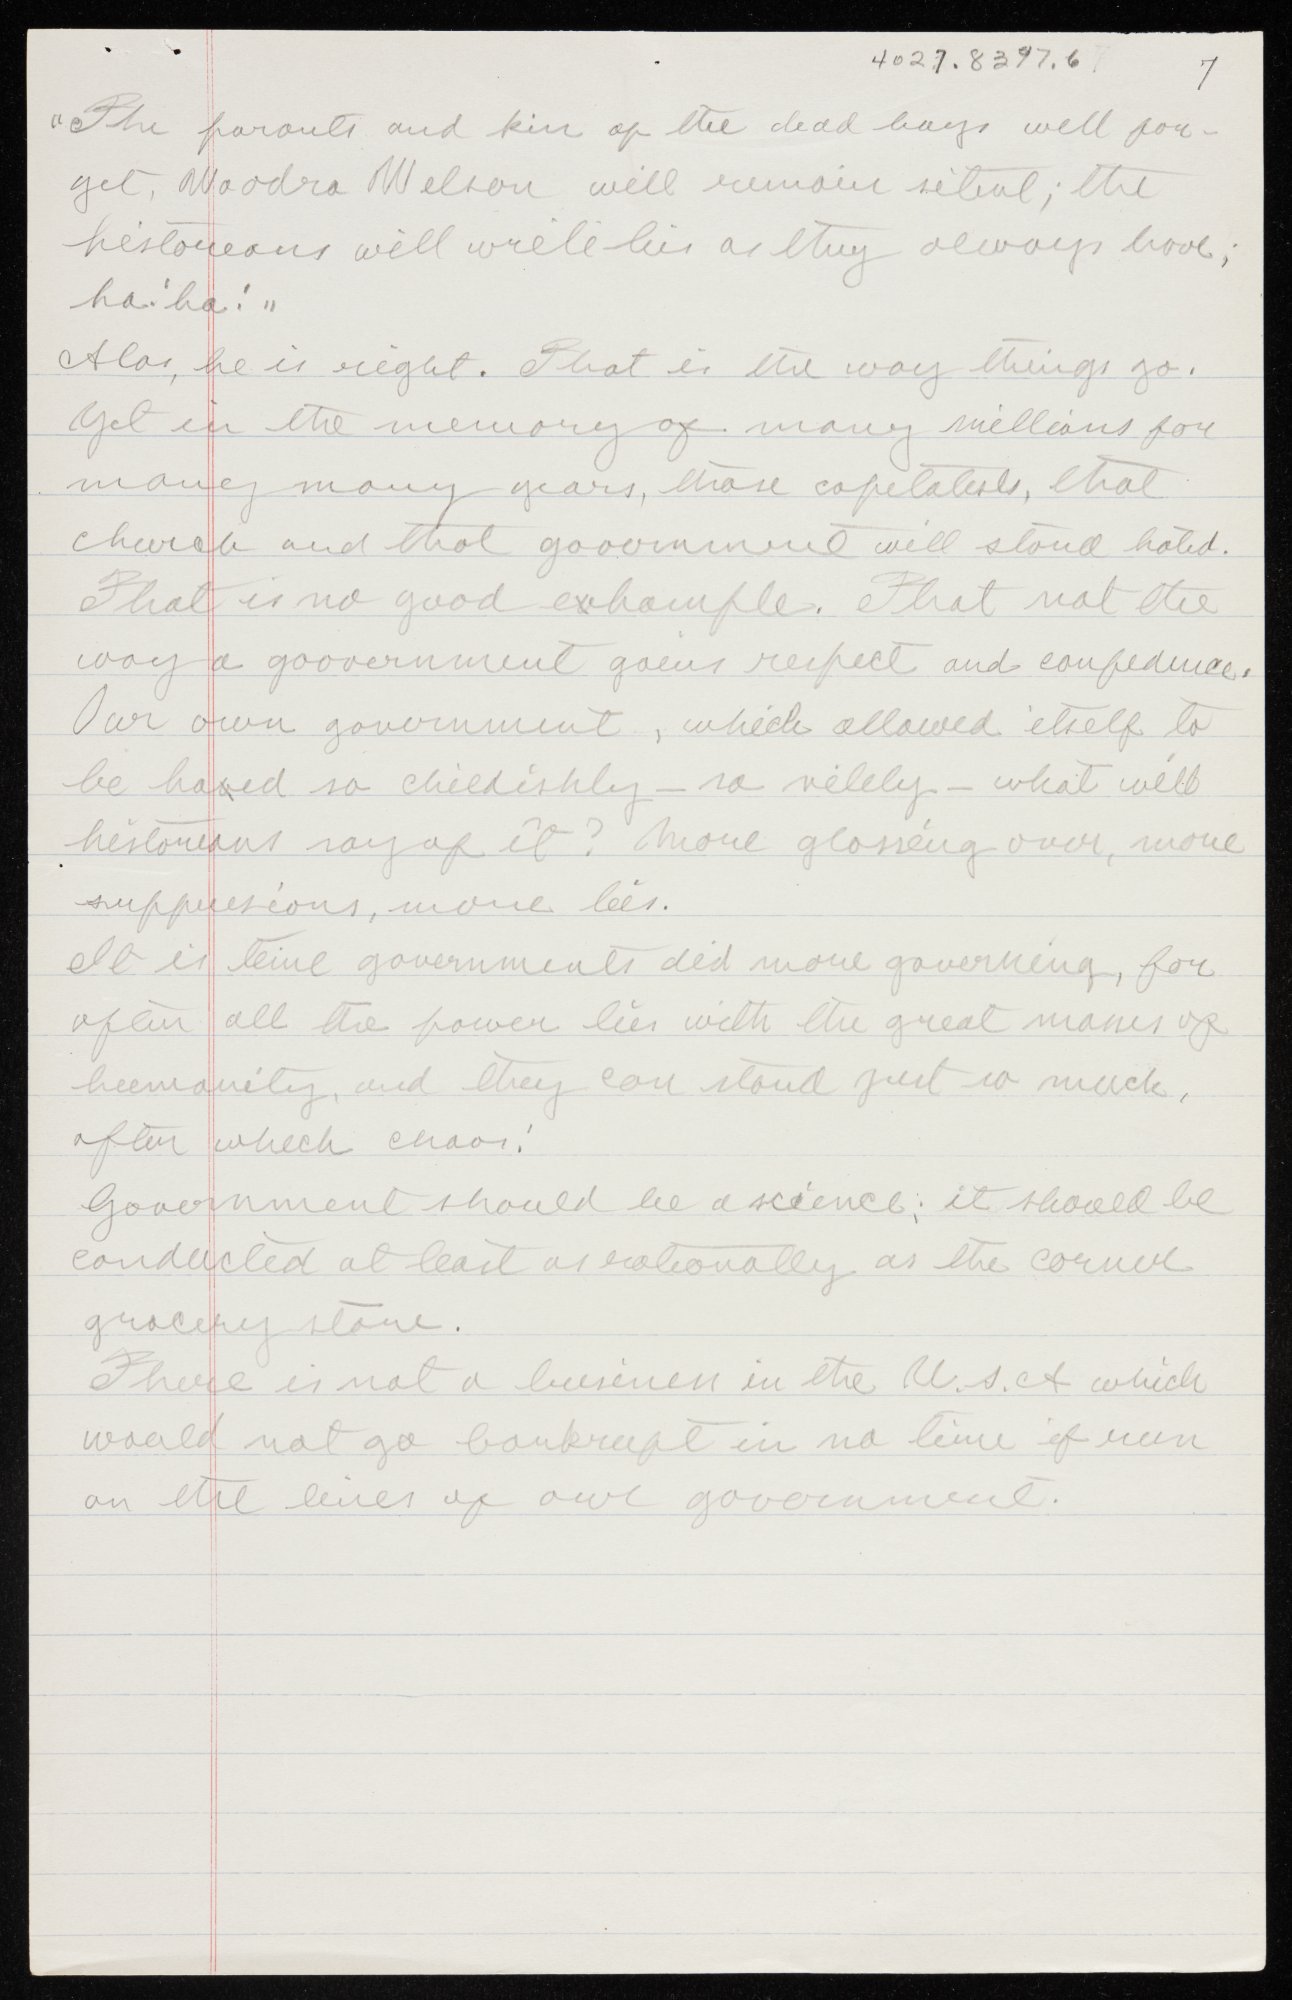 4027.8397.6
7
"The parents and kin of the dead boys will for-
get, Woodro Wilson will remain silent; the
historians will write lies as they always have;
ha! ha!"
Alas, he is right. That is the way things go.
Yet in the memory of many millions for
many many years, those capitalists, that
church and that goovernment will stand hated.
That is no good exhample. That not the
way a goovernment gains respect and confidence.
Our own government, which allowed itself to
be haxed so childishly – so vilely – what will
historians say of it? More glossing over, more
suppresions, more lies.
It is time governments did more governing, for
after all the power lies with the great masses of
humanity, and they can stand just so much,
after which chaos!
Government should be a science; it should be
conducted at least as rationally as the corner
grocery store.
There is not a business in the U.S.A which
would not go bankrupt in no time if run
on the lines of our government.